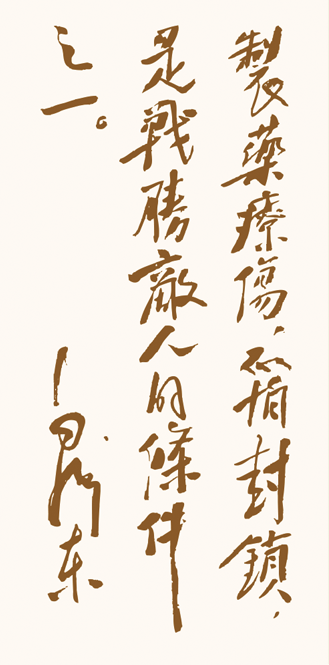 製藥療傷，不怕封鎖，
是戰勝敵人的條件
之一。
毛泽东